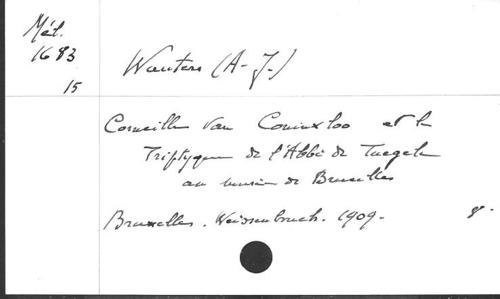 Mél.
1683
15
Wauters (A-J-)
Corneille van Coninxloo et le
Triptyque de l'Abbé de Tuegele
au musée de Bruxelles
Bruxelles. Weissenbruch. 1909. 8°